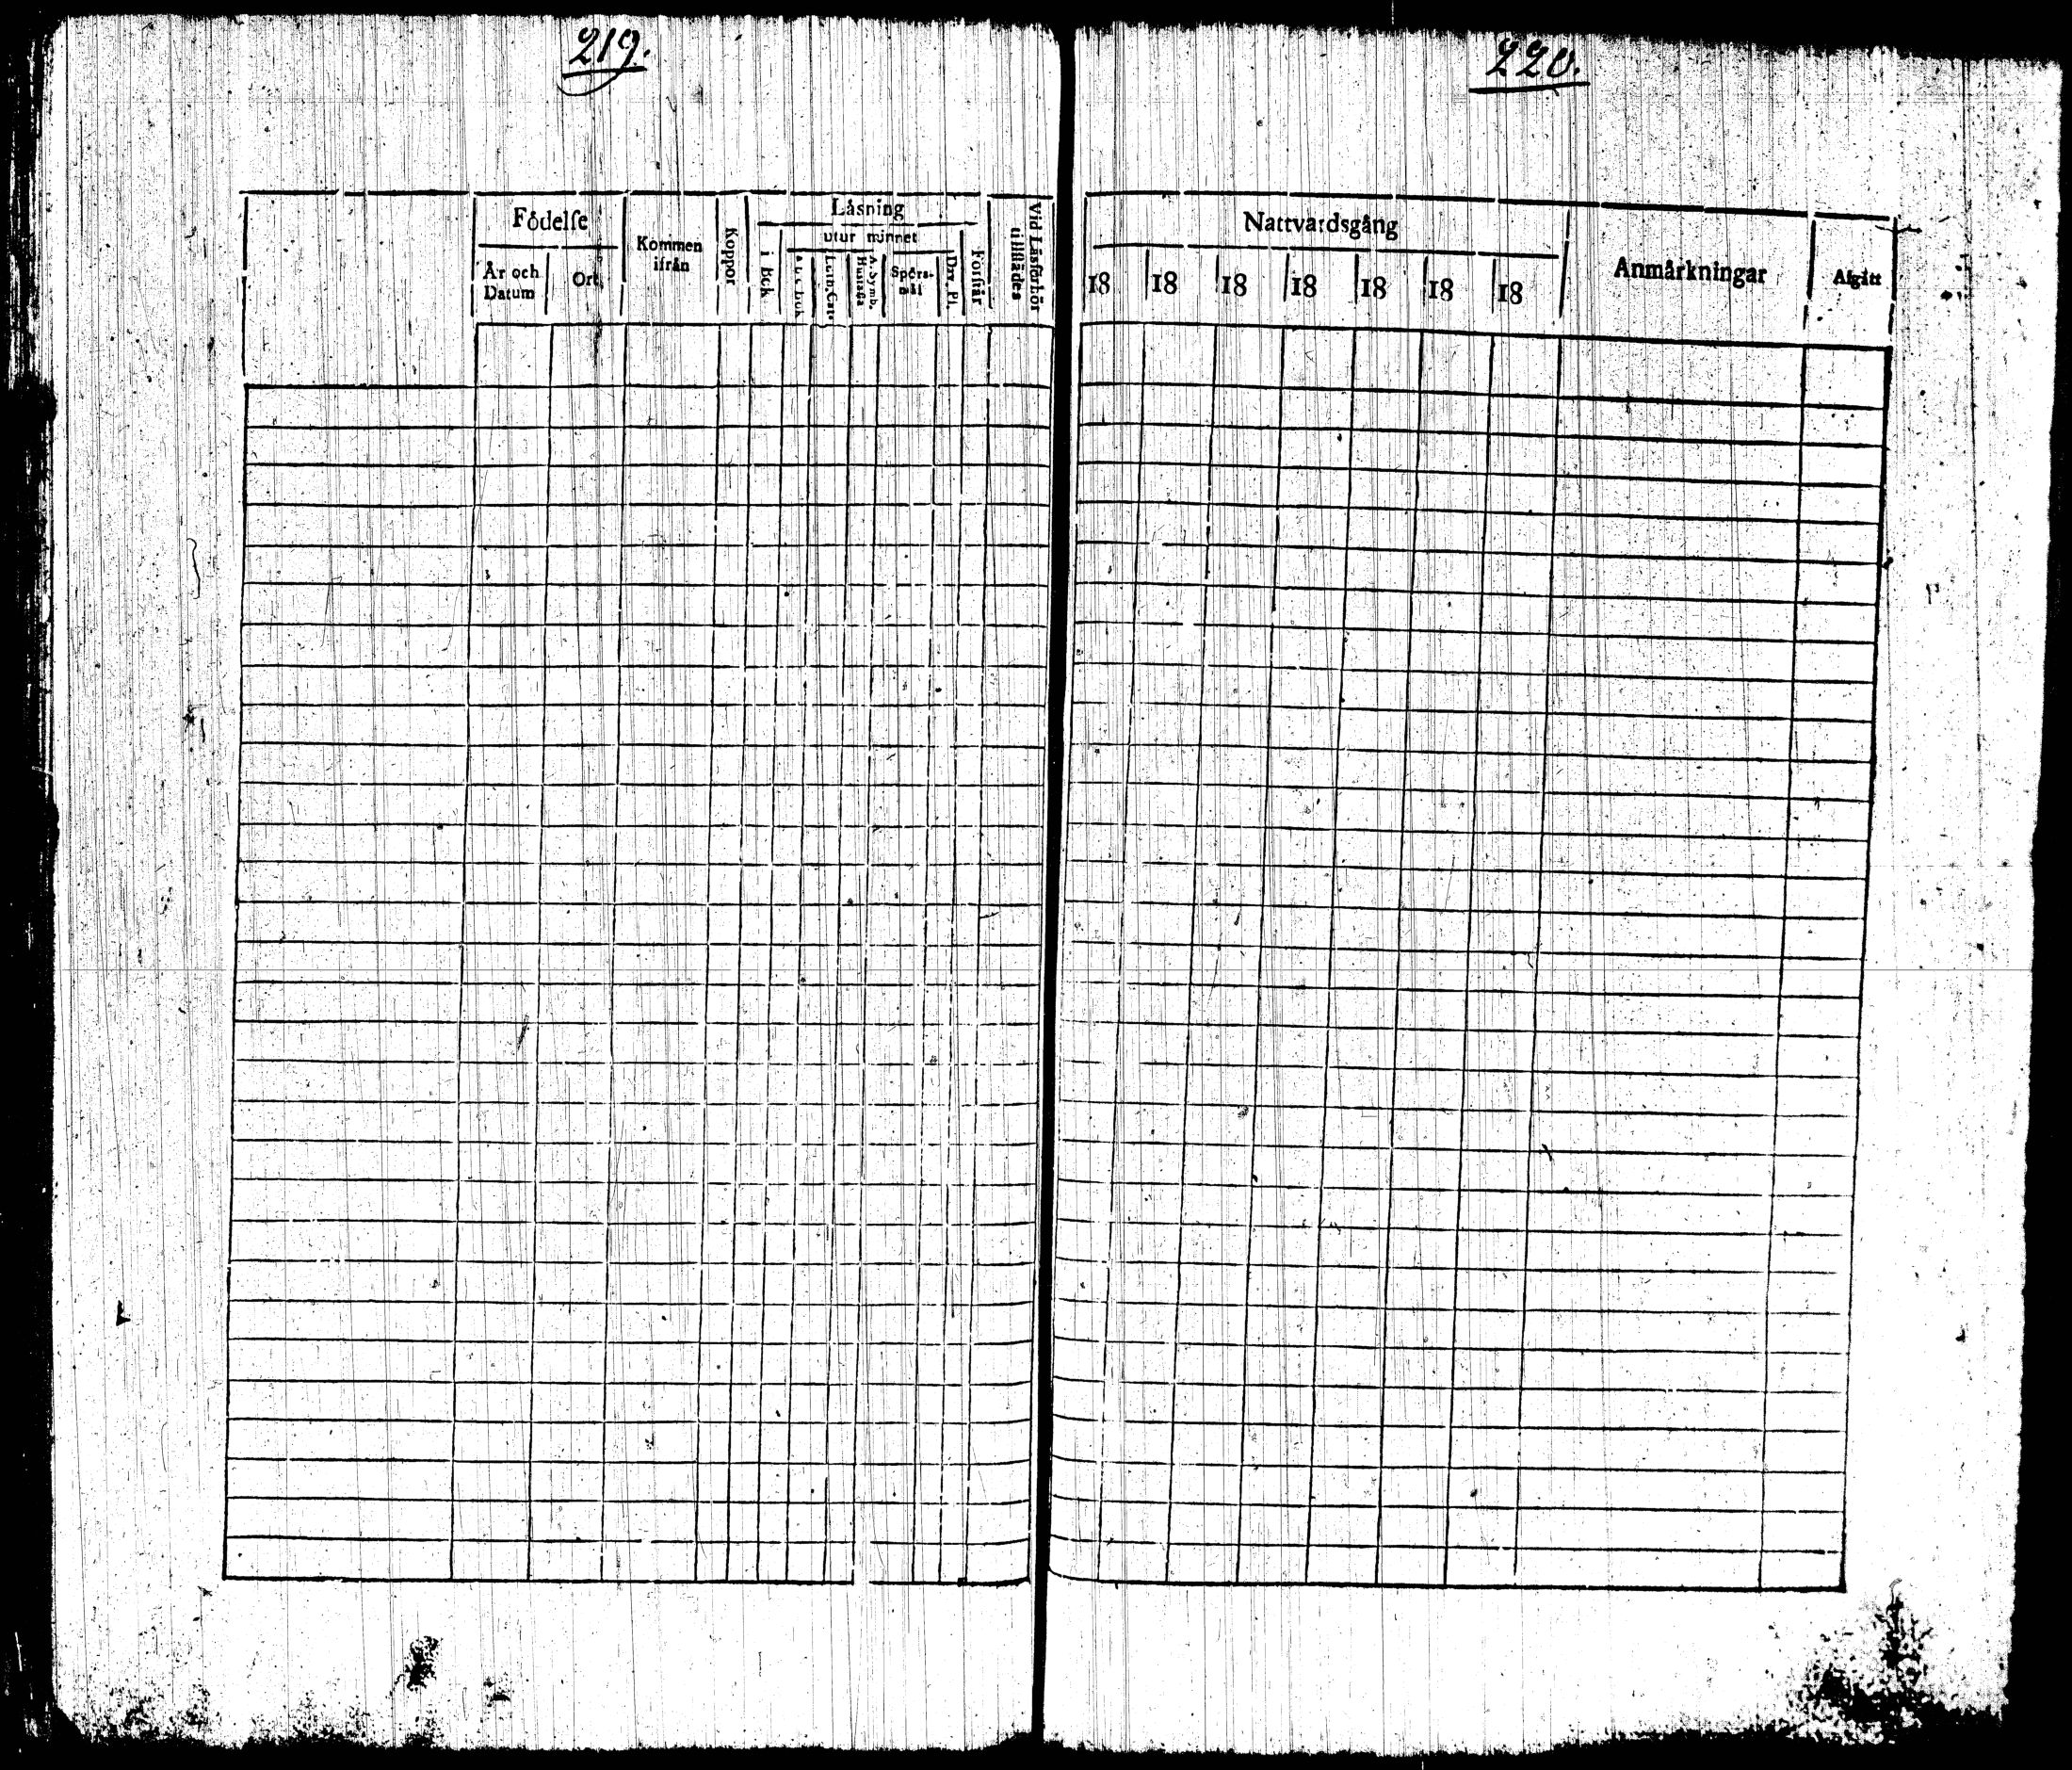 219.
220.
Födelse
År och Datum
Ort.
Kommen ifrån
Koppor
Läsning
i Bok
utur minnet
a b c bok
Luth. Cate
A. Symb. Hustafla
Spörs-mål
Dav. Ps.
Förstår
Vid Läsförhör tillstädes
Nattvardsgång
18 18 18 18 18 18 18
Anmärkningar
Afgått